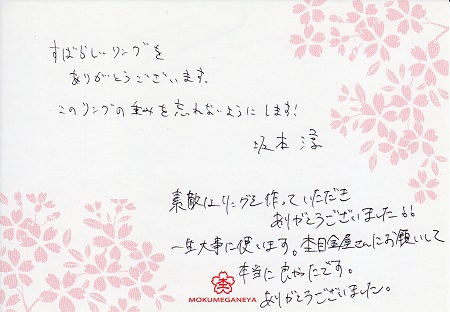 すばらしいリングを
ありがとうございます。
このリングの重みを忘れないようにします!
坂本 淳
素敵なリングを作っていただき
ありがとうございました!!
一生大事に使います。杢目金屋さんにお願いして
本当に良かったです。
ありがとうございました。
MOKUMEGANEYA